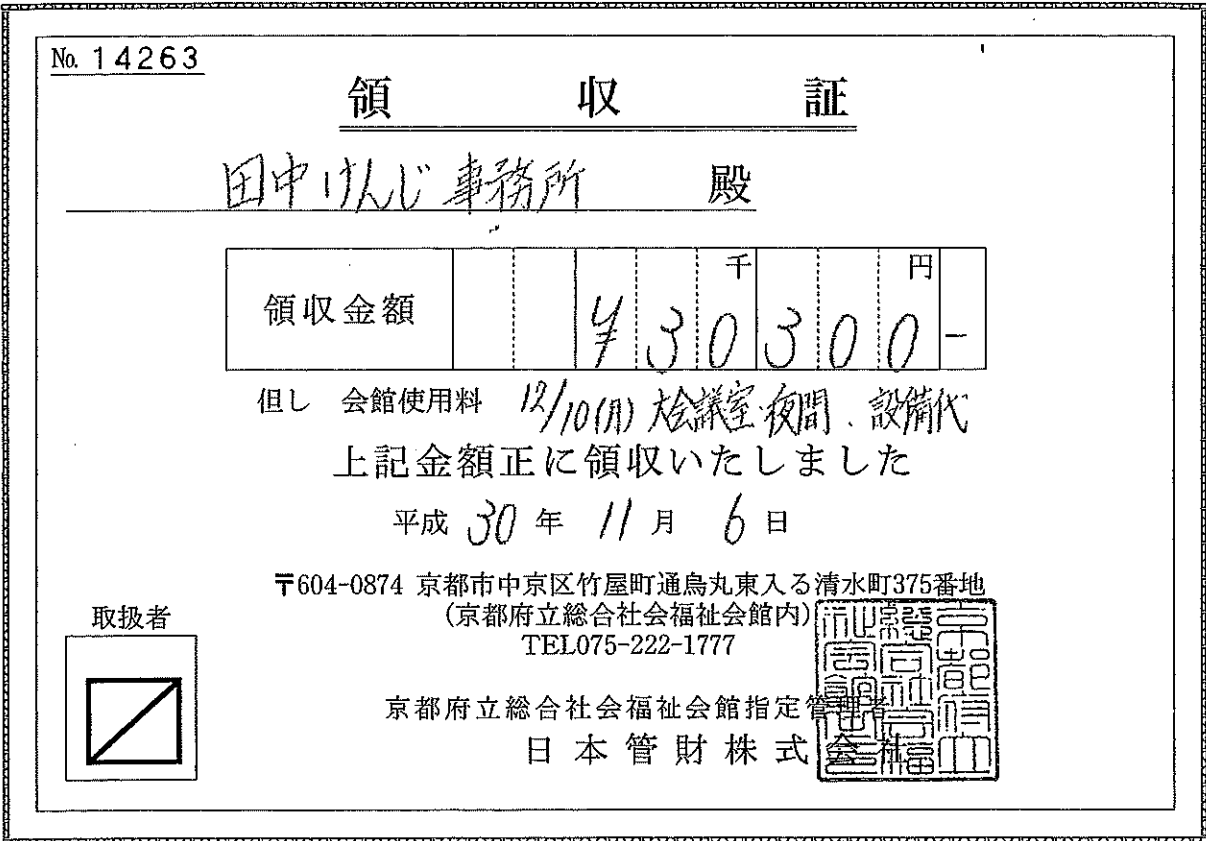 No. 14263
領収証
田中けんじ事務所 殿
千 円
領収金額 ¥30300-
但し 会館使用料 12/10(月) 大会議室・夜間、設備代
上記金額正に領収いたしました
平成 30 年 11 月 6 日
〒604-0874 京都市中京区竹屋町通烏丸東入る清水町375番地
(京都府立総合社会福祉会館内)
TEL075-222-1777
取扱者
京都府立総合社会福祉会館指定管理者
日本管財株式会社